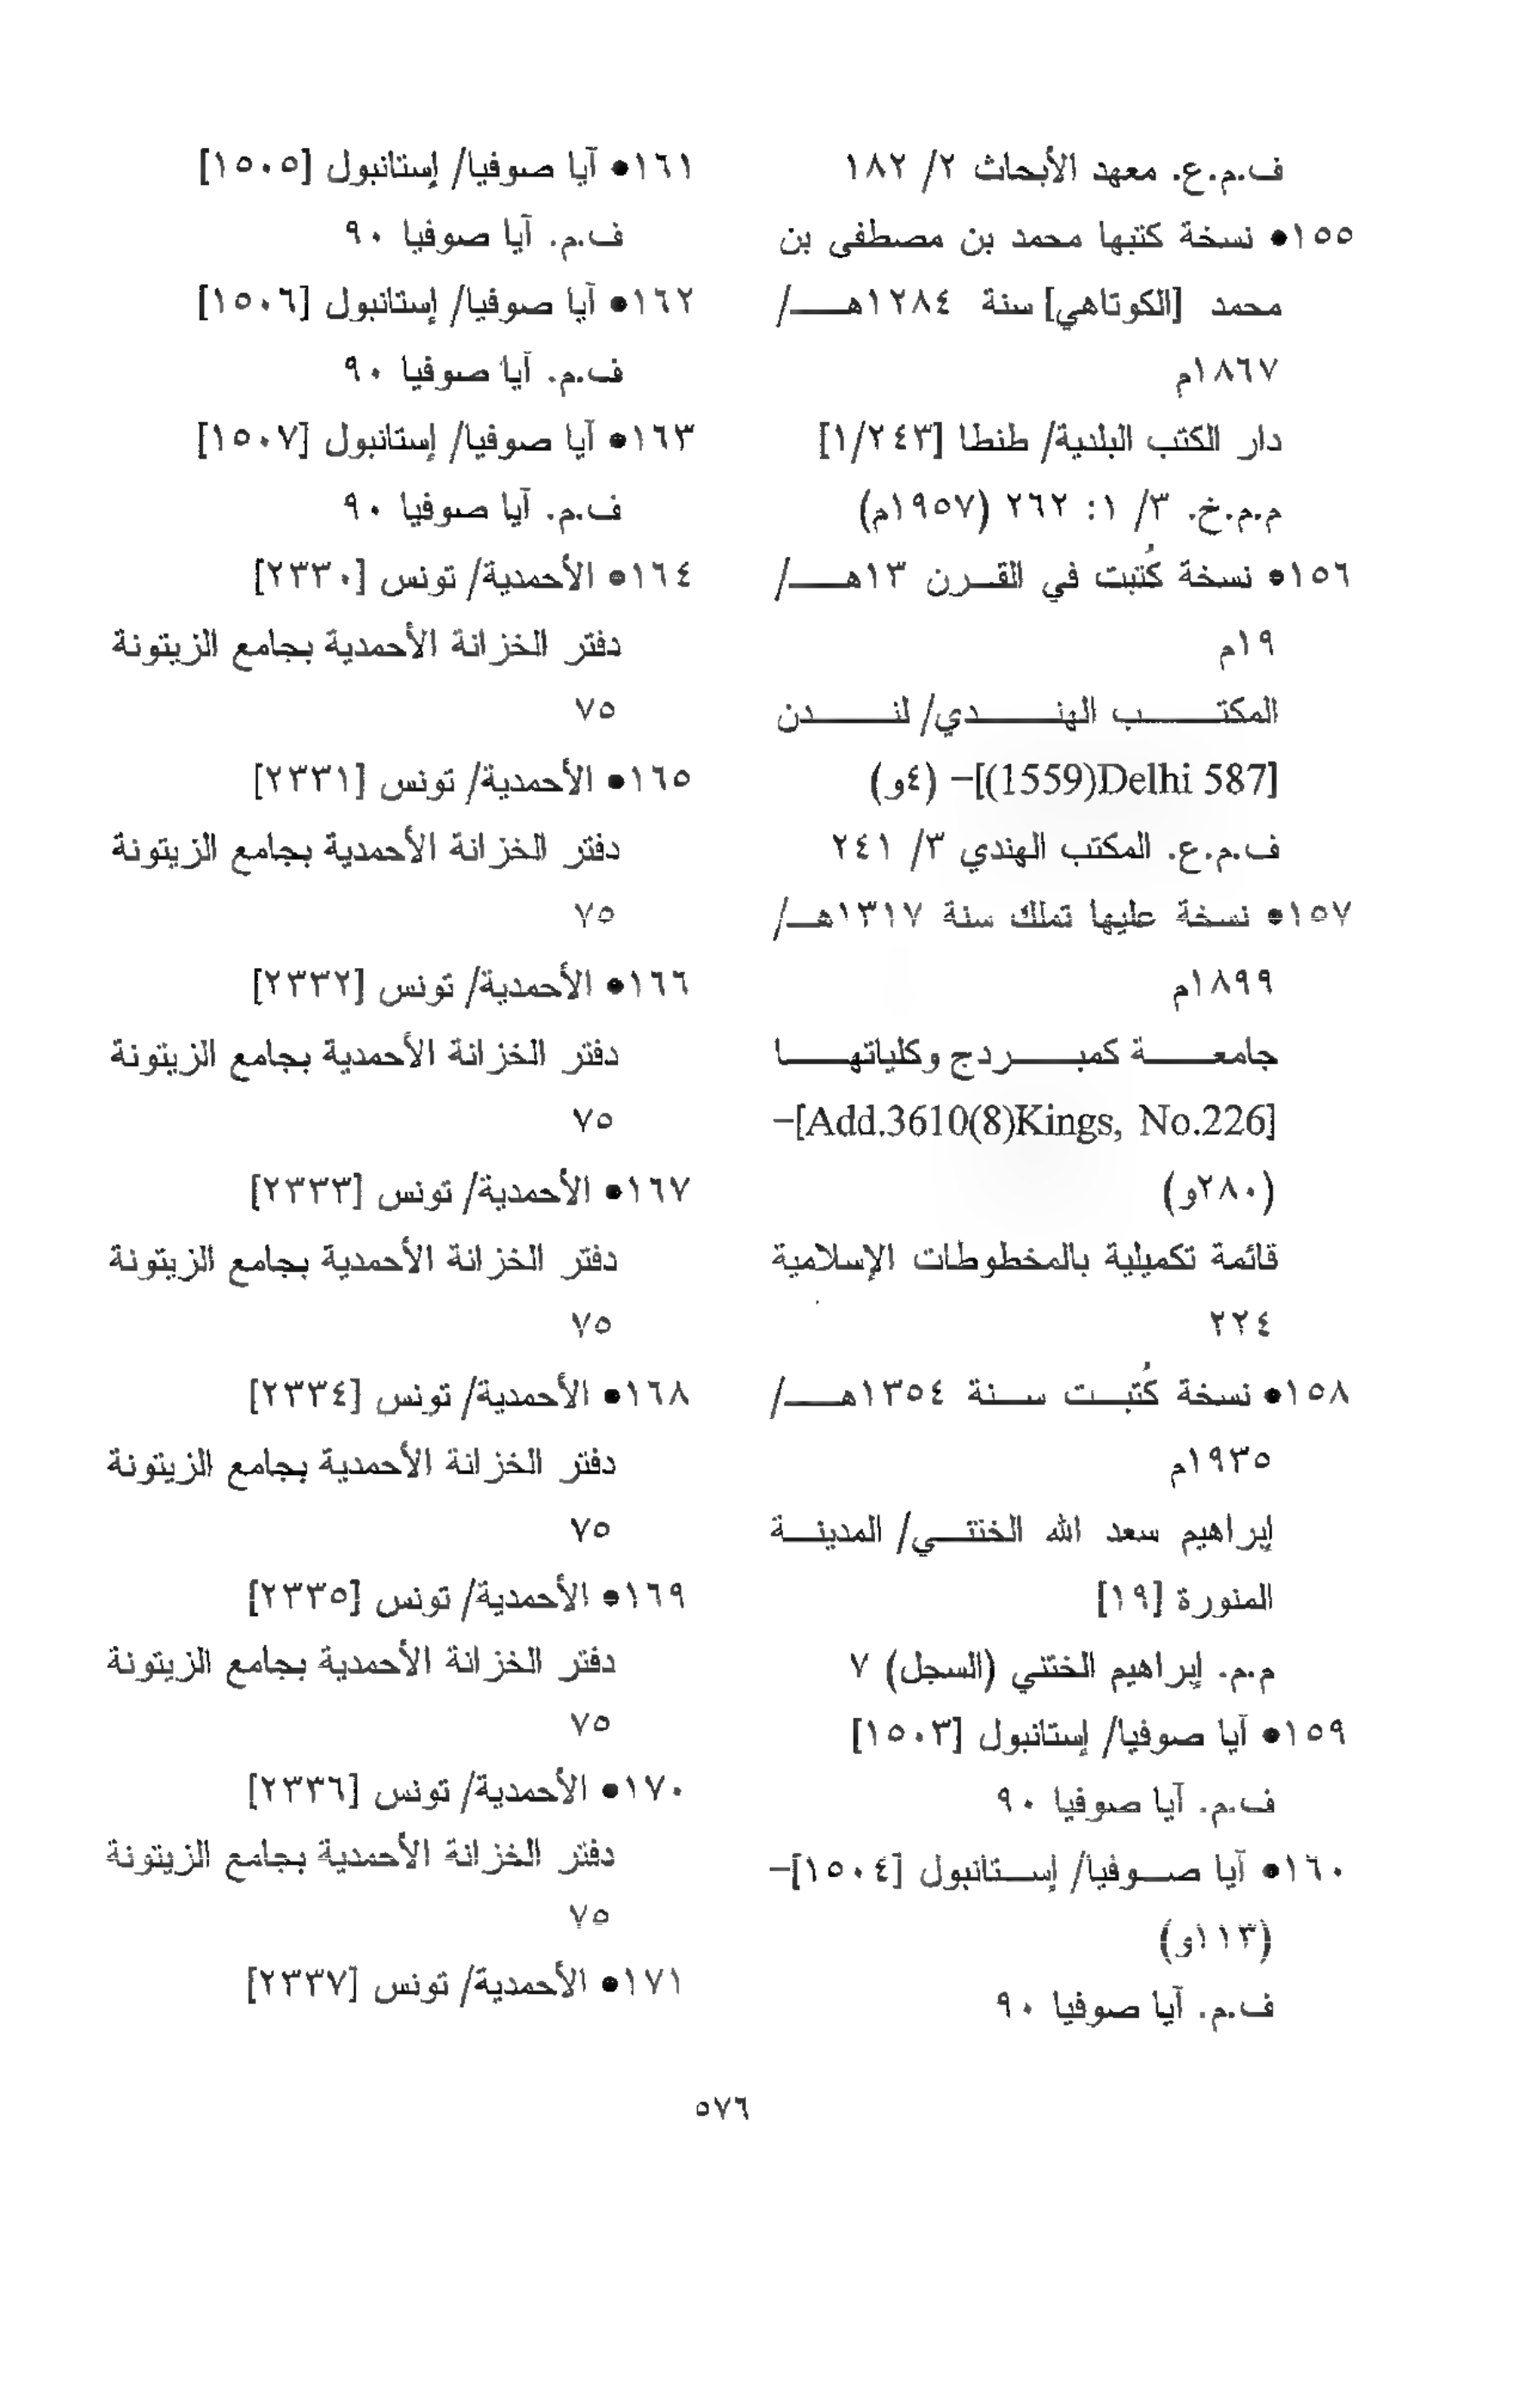 ف.م.ع. معهد الأبحاث ٢/ ١٨٢
١٥٥• نسخة كتبها محمد بن مصطفى بن
محمد [الكوتاهي] سنة ١٢٨٤هـ/
١٨٦٧م
دار الكتب البلدية/ طنطا [١/٢٤٣]
م.م.خ. ٣/ ١: ٢٦٢ (١٩٥٧م)
١٥٦• نسخة كُتبت في القرن ١٣هـ/
١٩م
المكتب الهندي/ لندن
[Delhi 587(1559)]– (٤و)
ف.م.ع. المكتب الهندي ٣/ ٢٤١
١٥٧• نسخة عليها تملك سنة ١٣١٧هـ/
١٨٩٩م
جامعة كمبردج وكلياتها
[Add.3610(8)Kings, No.226]–
(٢٨٠و)
قائمة تكميلية بالمخطوطات الإسلامية
٢٢٤
١٥٨• نسخة كُتبت سنة ١٣٥٤هـ/
١٩٣٥م
إبراهيم سعد الله الختني/ المدينة
المنورة [١٩]
م.م. إبراهيم الختني (السجل) ٧
١٥٩• آيا صوفيا/ إستانبول [١٥٠٣]
ف.م. آيا صوفيا ٩٠
١٦٠• آيا صوفيا/ إستانبول [١٥٠٤]–
(١١٣و)
ف.م. آيا صوفيا ٩٠
١٦١• آيا صوفيا/ إستانبول [١٥٠٥]
ف.م. آيا صوفيا ٩٠
١٦٢• آيا صوفيا/ إستانبول [١٥٠٦]
ف.م. آيا صوفيا ٩٠
١٦٣• آيا صوفيا/ إستانبول [١٥٠٧]
ف.م. آيا صوفيا ٩٠
١٦٤• الأحمدية/ تونس [٢٣٣٠]
دفتر الخزانة الأحمدية بجامع الزيتونة
٧٥
١٦٥• الأحمدية/ تونس [٢٣٣١]
دفتر الخزانة الأحمدية بجامع الزيتونة
٧٥
١٦٦• الأحمدية/ تونس [٢٣٣٢]
دفتر الخزانة الأحمدية بجامع الزيتونة
٧٥
١٦٧• الأحمدية/ تونس [٢٣٣٣]
دفتر الخزانة الأحمدية بجامع الزيتونة
٧٥
١٦٨• الأحمدية/ تونس [٢٣٣٤]
دفتر الخزانة الأحمدية بجامع الزيتونة
٧٥
١٦٩• الأحمدية/ تونس [٢٣٣٥]
دفتر الخزانة الأحمدية بجامع الزيتونة
٧٥
١٧٠• الأحمدية/ تونس [٢٣٣٦]
دفتر الخزانة الأحمدية بجامع الزيتونة
٧٥
١٧١• الأحمدية/ تونس [٢٣٣٧]
٥٧٦